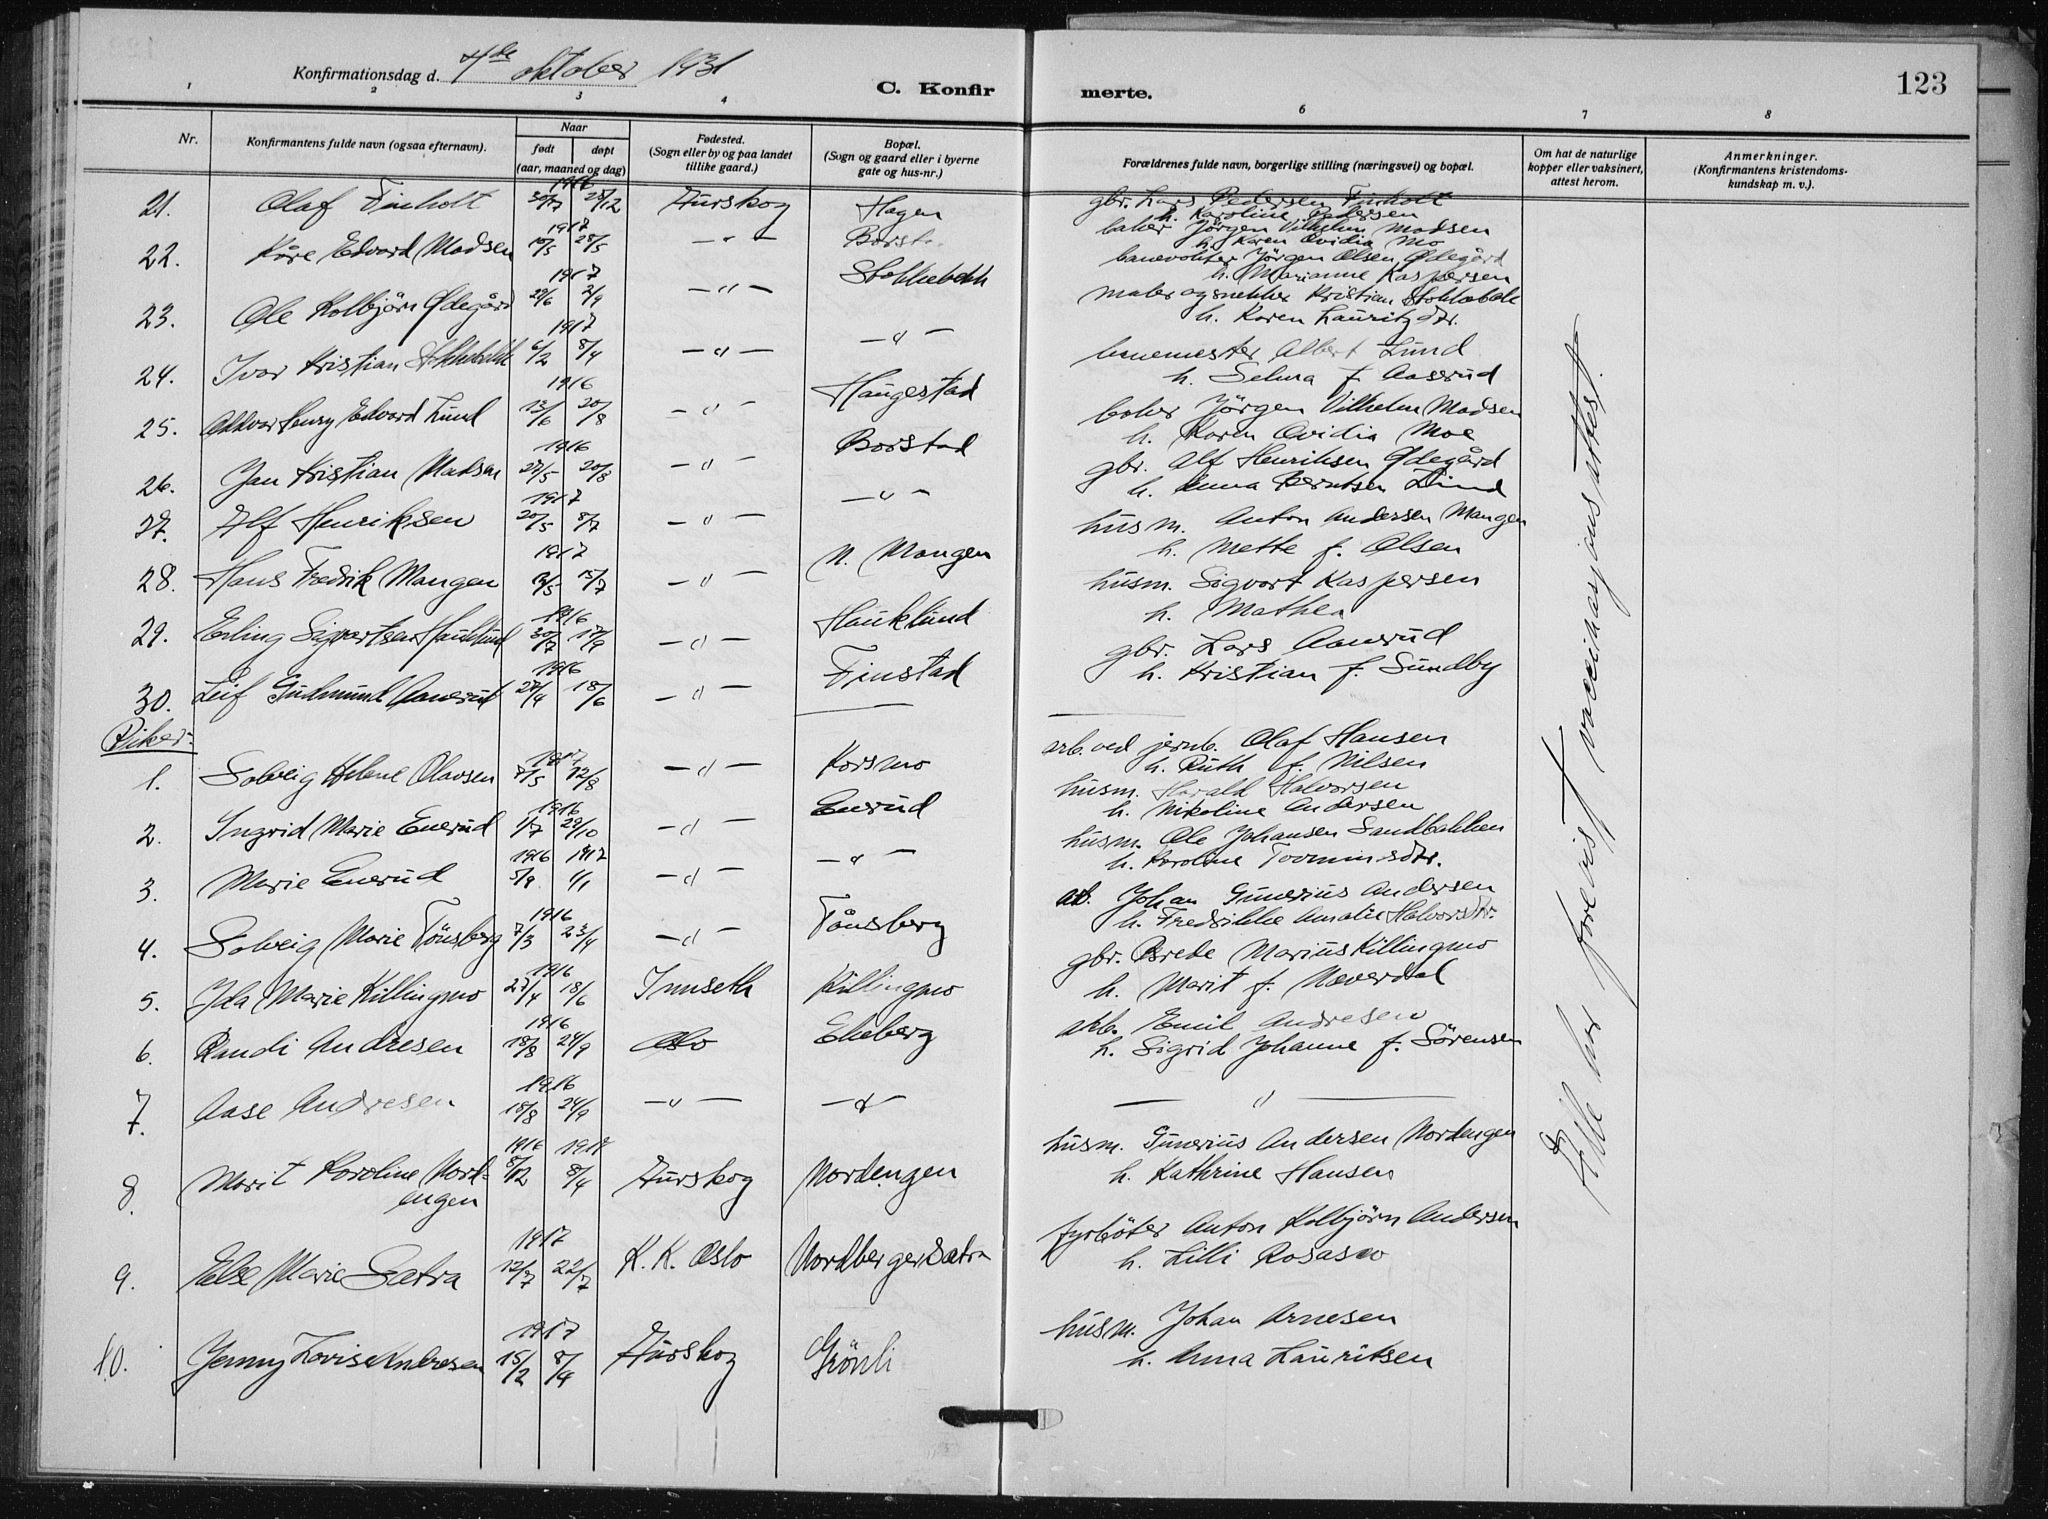 Konfirmationsdag d. 4de oktober 1931
C. Konfir
merte.
123
1 2 3 4 5 6 7 8
Nr.
Konfirmantens fulde navn (ogsaa efternavn).
Naar
født døpt
(aar, maaned og dag)
Fødested.
(Sogn eller by og paa landet
tillike gaard.)
Bopæl.
(Sogn og gaard eller i byerne
gate og hus-nr.)
Forældrenes fulde navn, borgerlige stilling (næringsvei) og bopæl.
Om hat de naturlige
kopper eller vaksinert,
attest herom.
Anmerkninger.
(Konfirmantens kristendoms-
kundskap m. v.).
21. Olaf Finholt 1916 28/12 Aurskog Hagen gbr. Lars Pedersen Finholt
h. Karoline Pedersen
22. Kåre Edvard Madsen 1917 28/5 — " — Borst baker Jörgen Vilhelm Madsen
h. Karen Ovidia Mo
banevokter Jörgen Olsen Ödegård
h. Marianne Kaspersen
23. Ole Kolbjörn Ödegård 1917 2/9 — " — Stokkebekk
maler og snekker Kristian Stokkebekk
h. Karen Lauritzdtr.
24. Ivar Kristian Stokkebekk 1917 6/2 8/4 — " — — " —
banemester Albert Lund
h. Selma f. Aaserud
25. Henry Edvard Lund 1916 13/6 20/8 — " — Haugestad
baker Jörgen Vilhelm Madsen
h. Karen Ovidia Moe
26. Jan Kristian Madsen 1916 27/5 20/8 — " — Borstad
gbr. Alf Henriksen Ödegård
h. Anna Berntsen Lund
27. Alf Henriksen 1917 20/5 8/7 — " — — " —
husm. Anton Andersen Mangen
h. Mette f. Olsen
28. Hans Fredrik Mangen 1917 15/7 — " — N. Mangen
husm. Sigvart Kaspersen
h. Mathea
29. Erling Sigvartsen Hauklund 1916 30/7 17/9 — " — Hauklund
gbr. Lars Aanerud
h. Kristian f. Sundby
30. Leif Gudmund Aanerud 1916 27/4 18/6 — " — Finstad
Piker:
1. Solveig Helene Olavsen 1917 12/8 — " — Korsmo arb. ved jernb. Olaf Hansen
h. Ruth f. Nilsen
2. Ingrid Marie Enerud 1916 1/7 29/10 — " — Enerud husm. Harald Halvorsen
h. Nikoline Andersen
3. Marie Enerud 1916 1917 5/9 1/1 — " — — " — husm. Ole Johansen Sandbakken
h. Karoline
4. Solveig Marie Tönsberg 1916 7/3 23/4 — " — Tånsberg arb. Johan Gunerius Andersen
h. Fredrikke Amalie Halvorsdtr.
5. Ida Marie Killingmo 1916 27/4 18/6 Innseth Killingmo gbr. Brede Marius Killingmo
h. Marit f. Næverdal
6. Randi Andresen 1916 18/8 24/9 Oslo Ekeberg arb. Emil Andresen
h. Sigrid Johanne f. Sörensen
7. Aase Andresen 1916 18/8 24/9 — " — — " — — " —
8. Marit Karoline Nord-
engen 1916 1917 8/12 8/4 Aurskog Nordengen husm. Gunerius Andersen Nordengen
h. Kathrine Hansen
9. Else Marie Sætra 1917 12/7 22/7 K. K. Oslo Nordberger Sætra fyrböter Anton Kolbjörn Andersen
h. Lilli
10. Jenny Lovise Andresen 1917 15/2 8/4 Aurskog Grönli husm. Johan Arnesen
h. Anna Lauritsen
Alle har forevist vaccinasjonsattest.